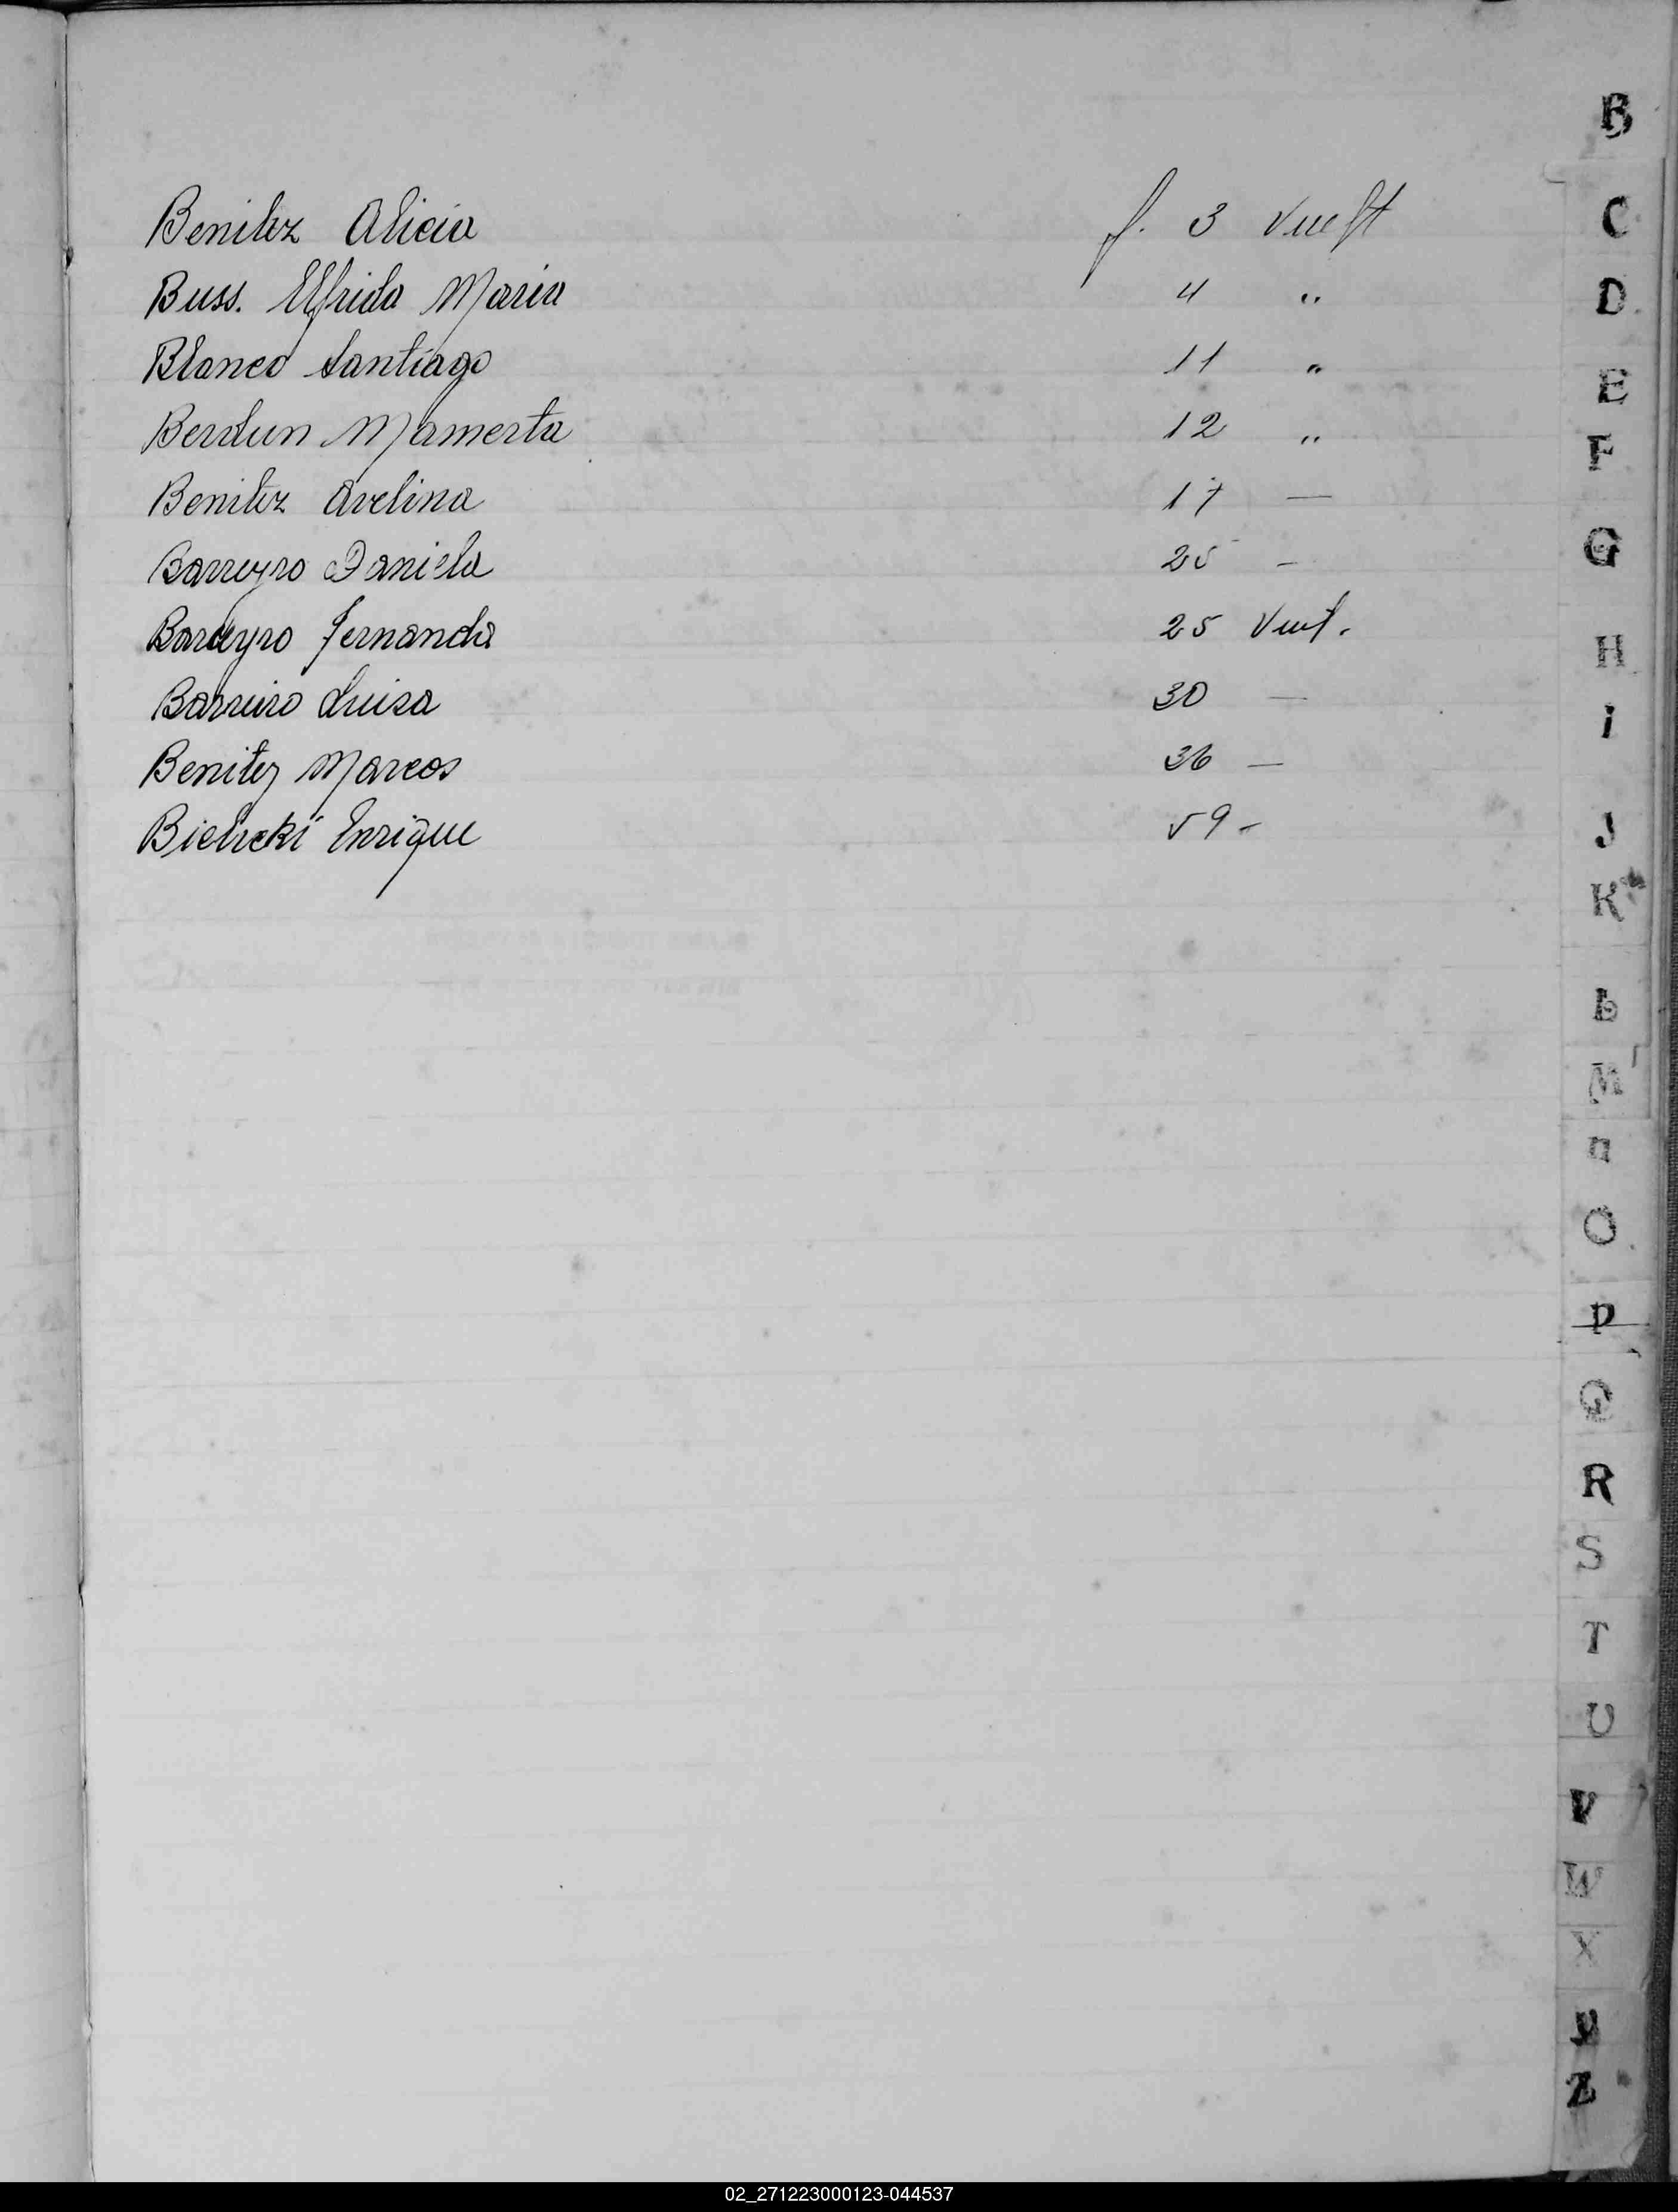 Benitez Alicia f. 3 Vuelt
Buss. Elfrida Maria 4 "
Blanco Santiago 11 "
Berdun Mamerta 12 "
Benitez Avelina 17 —
Barreyro Daniela 25 —
Barreyro Fernanda 25 Vuelt.
Barreiro Luisa 30 —
Benitez Marcos 36 —
Enrique 59 -
B
C
D
E
F
G
H
I
J
K
L
M
n
O
P
Q
R
S
T
U
V
W
X
Y
Z
02_271223000123-044537